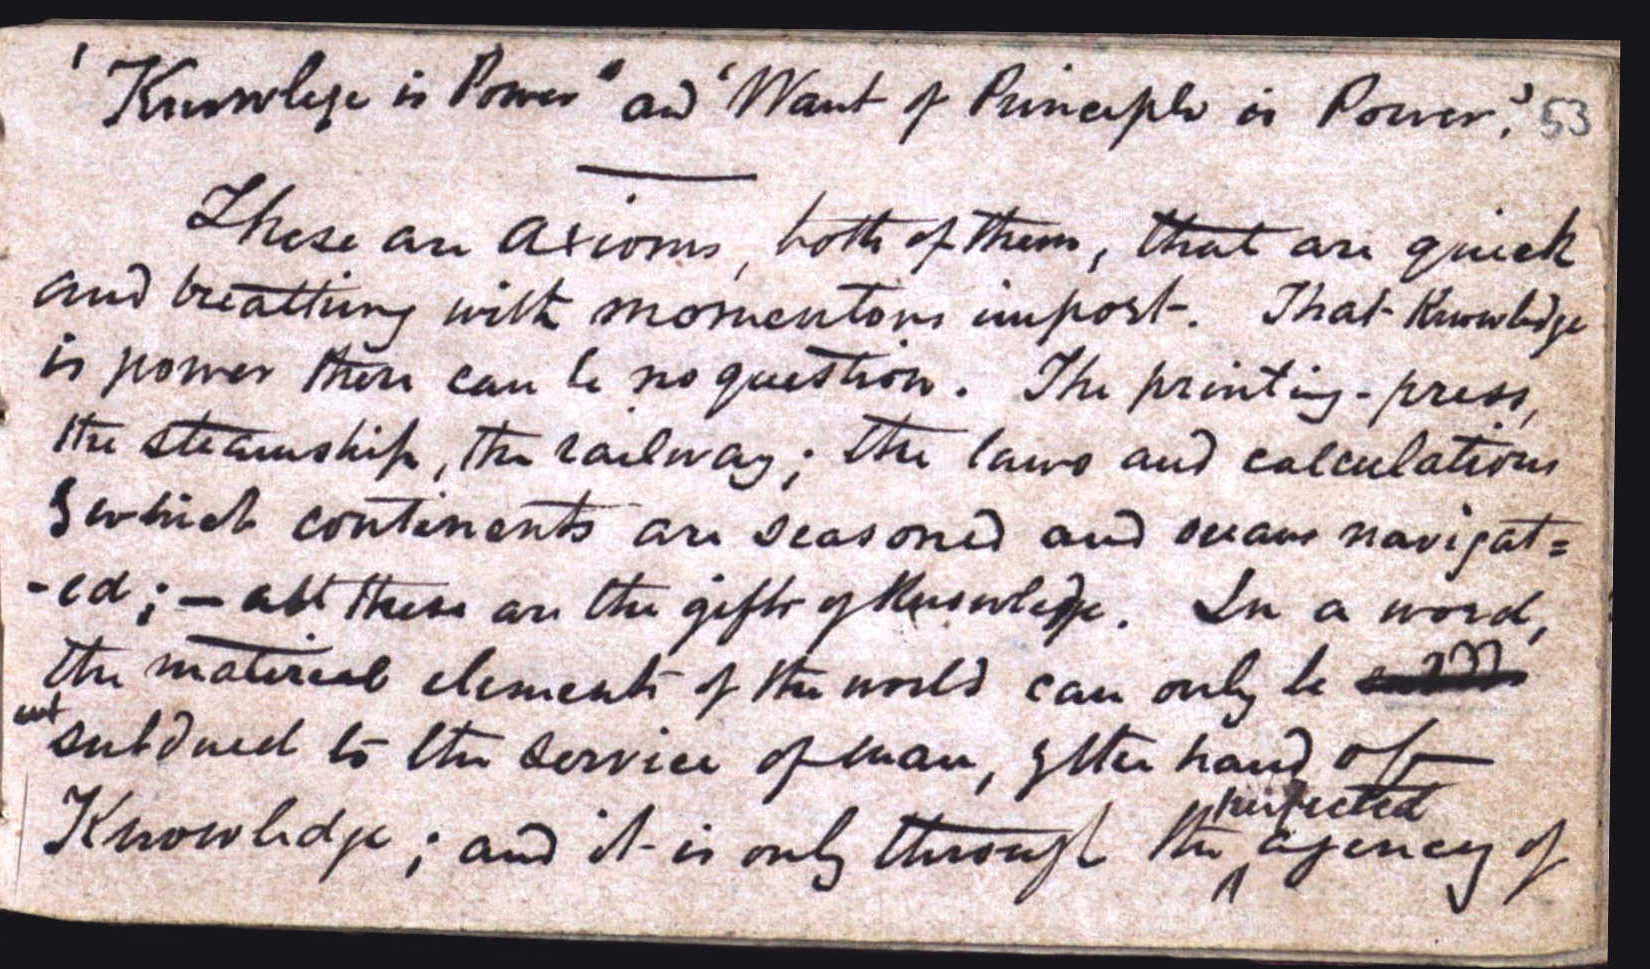 'Knowledge is Power" and 'Want of Principle is Power.' 53
These are axioms, both of them, that are quick
and breathing with momentous import. That Knowledge
is power there can be no question. The printing-press,
the steamship, the railway; the laws and calculations
by which continents are seasoned and oceans navigat=
-ed; — all these are the gifts of Knowledge. In a word,
the material elements of the world can only be
subdued to the service of man, by the hand of
Knowledge; and it is only through the perfected agency of